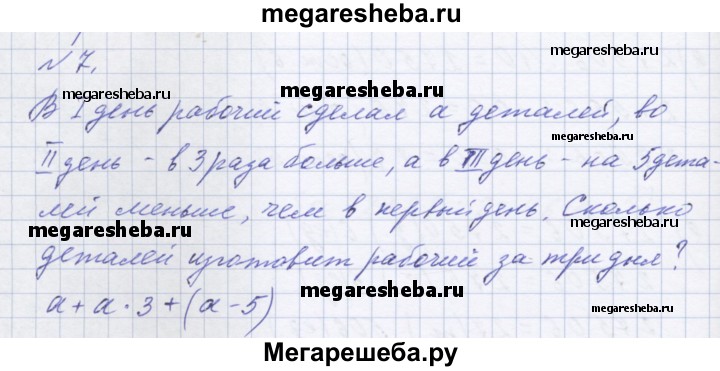 megaresheba.ru
№ 7.
megaresheba.ru
megaresheba.ru
megaresheba.ru
В I день рабочий сделал а деталей, во
megaresheba.ru
II день - в 3 раза больше, а в III день - на 5 дета-
megaresheba.ru
лей меньше, чем в первый день. Сколько
megaresheba.ru
megaresheba.ru
деталей изготовит рабочий за три дня?
megaresheba.ru
а + а · 3 + (а - 5)
megaresheba.ru
Мегарешеба.ру